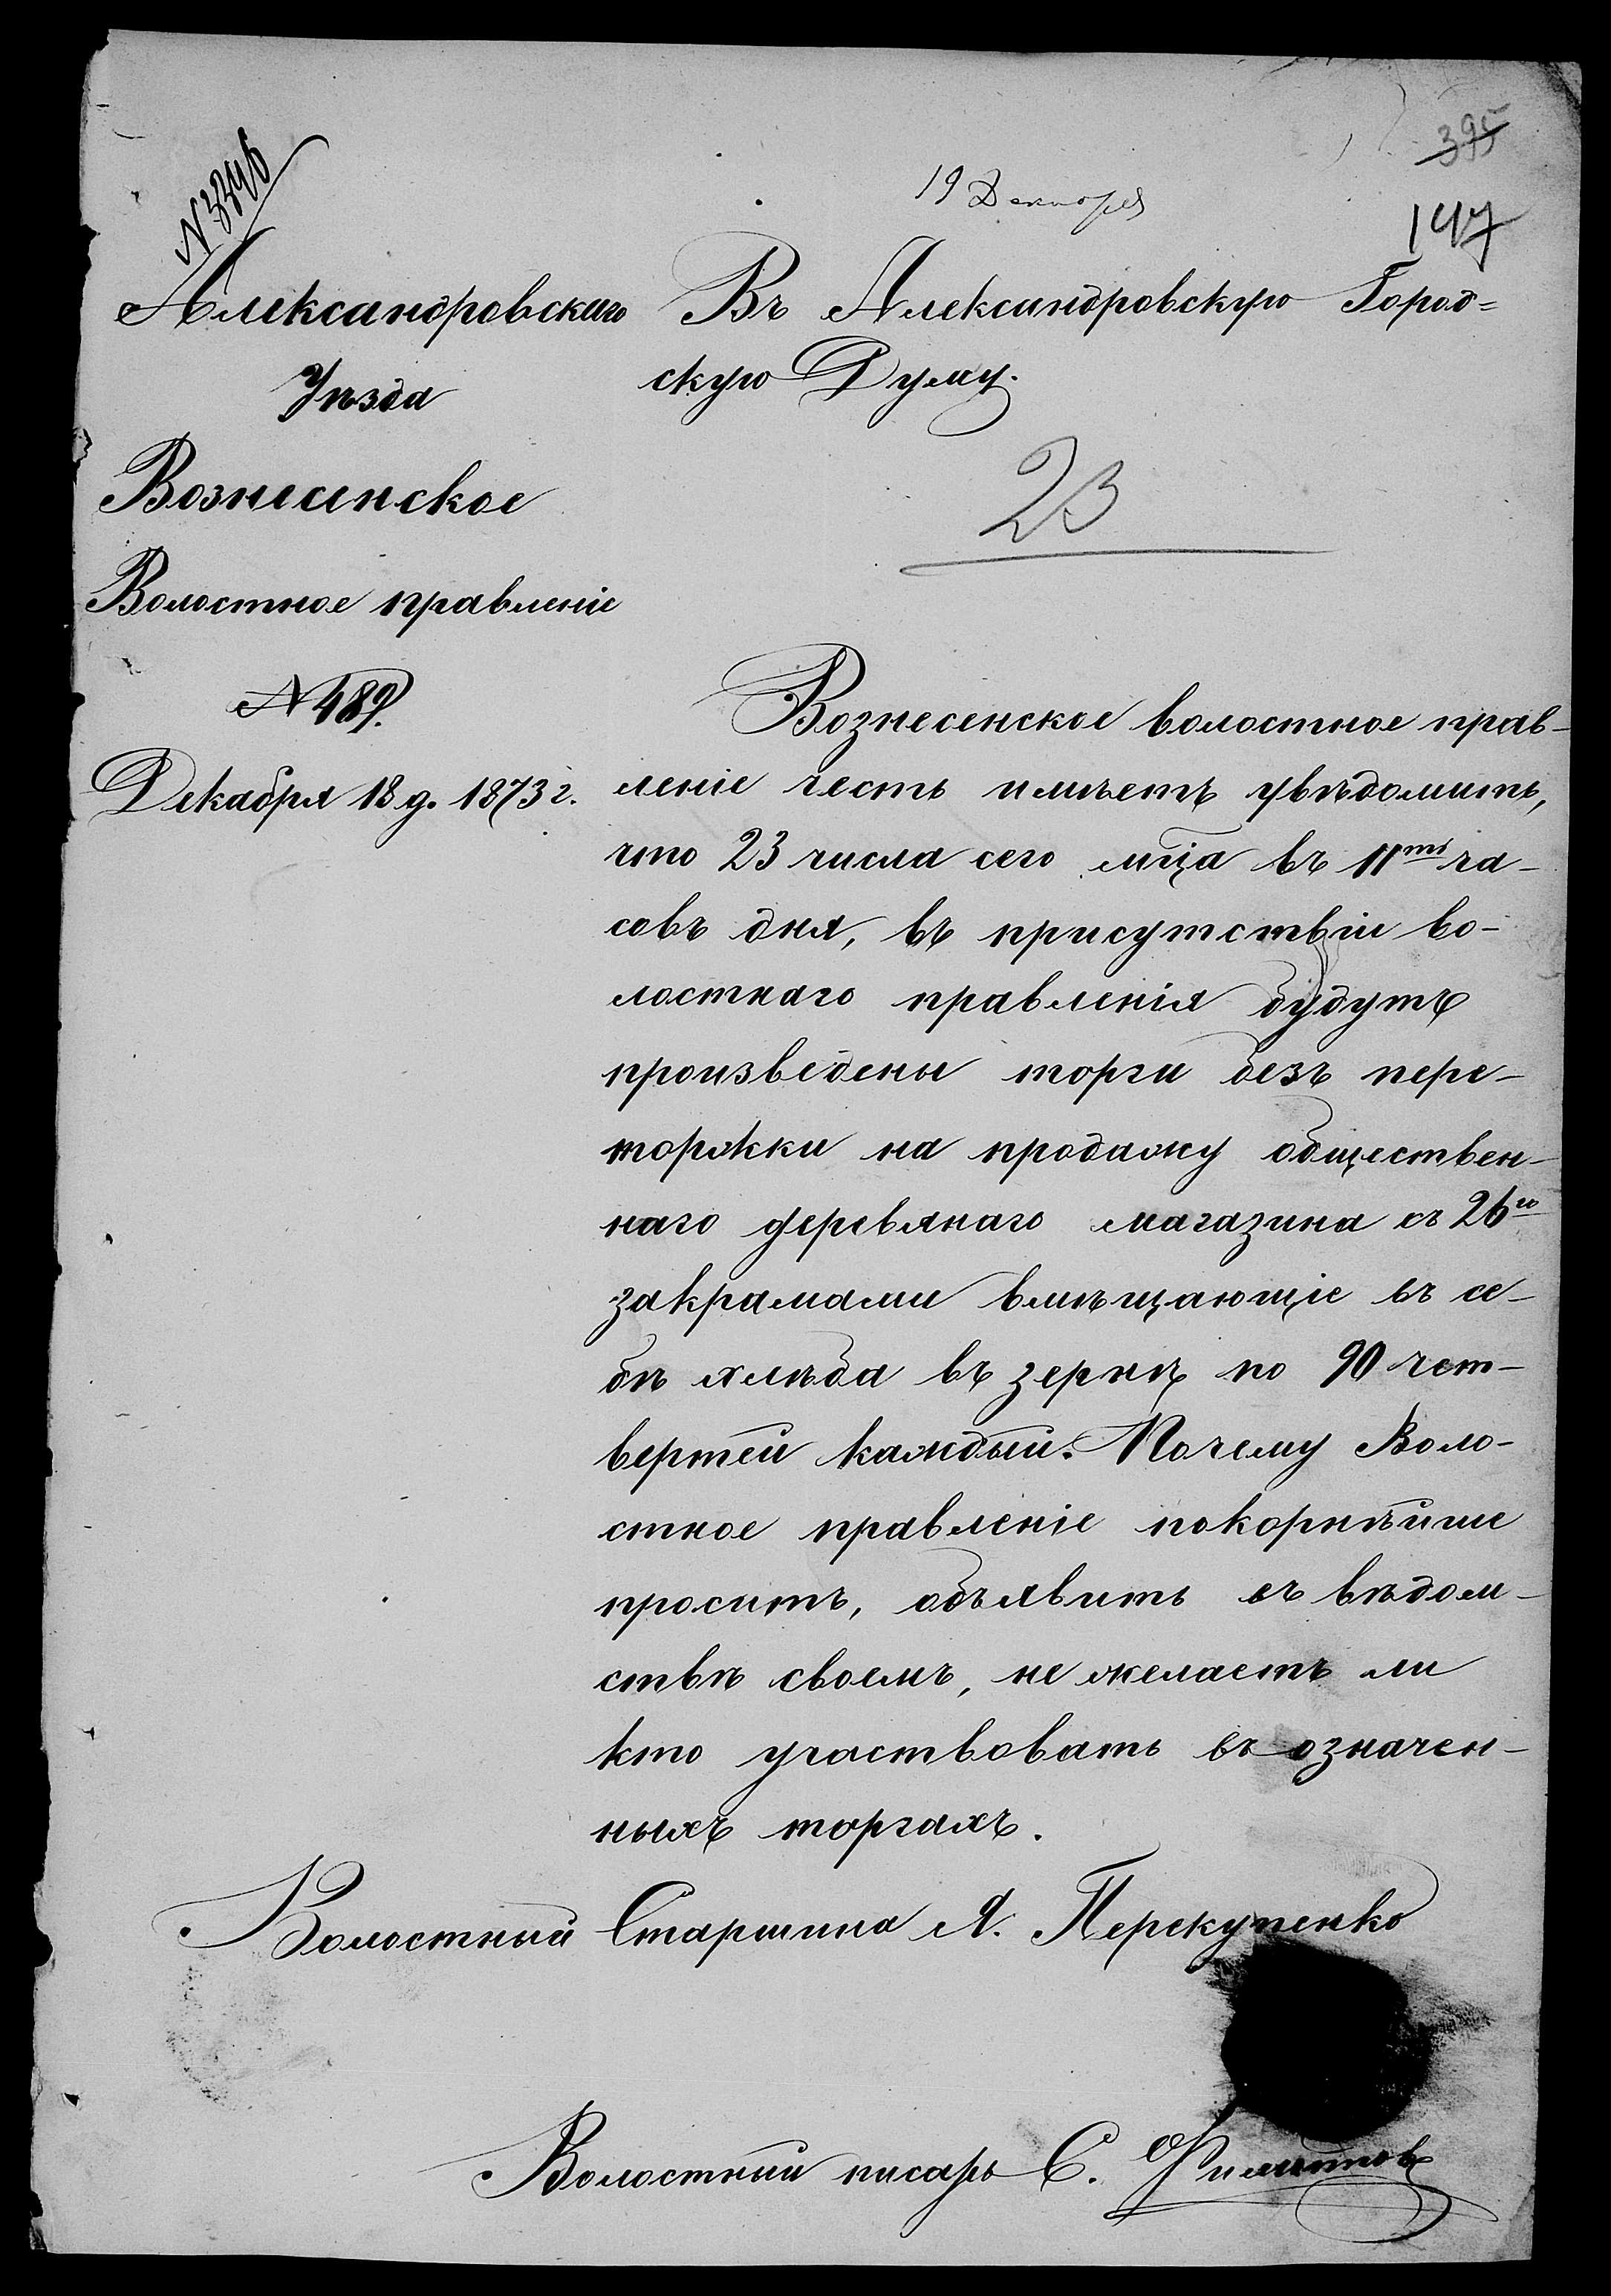 395
147
19 Декабря
Александровскаго
Уѣзда
Вознесенское
Волостное правленіе
№ 489.
Декабря 18 д. 1873 г.
Въ Александровскую Город=
скую Думу.
23
Вознесенское волостное прав-
леніе честь имѣетъ увѣдомить,
что 23 числа сего мца въ 11ть ча-
совъ дня, въ присутствіи во-
лостнаго правленія будутъ
произведены торги безъ пере-
торжки на продажу обществен-
наго деревянаго магазина съ 26ю
закрамами вмѣщающіе въ се-
бѣ хлѣба въ зернѣ по 90 чет-
вертей каждый. Почему Воло-
стное правленіе покорнѣйше
проситъ, объявить въ вѣдом-
ствѣ своемъ, не желаетъ ли
кто участвовать въ означен-
ныхъ торгахъ.
Волостный Старшина Я. Перекупенко
Волостный писарь С.